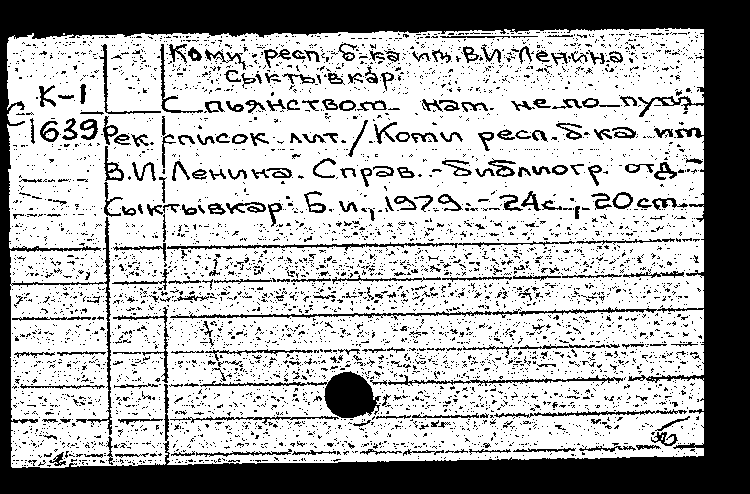 Коми респ. б-ка им. В.И. Ленина.
Сыктывкар.
К-1
1639
С пьянством нам не по пути:
Рек. список лит. / Коми респ. б-ка им.
В.И. Ленина. Справ. - библиогр. отд. -
Сыктывкар: Б. и., 1979. - 24с.; 20см.